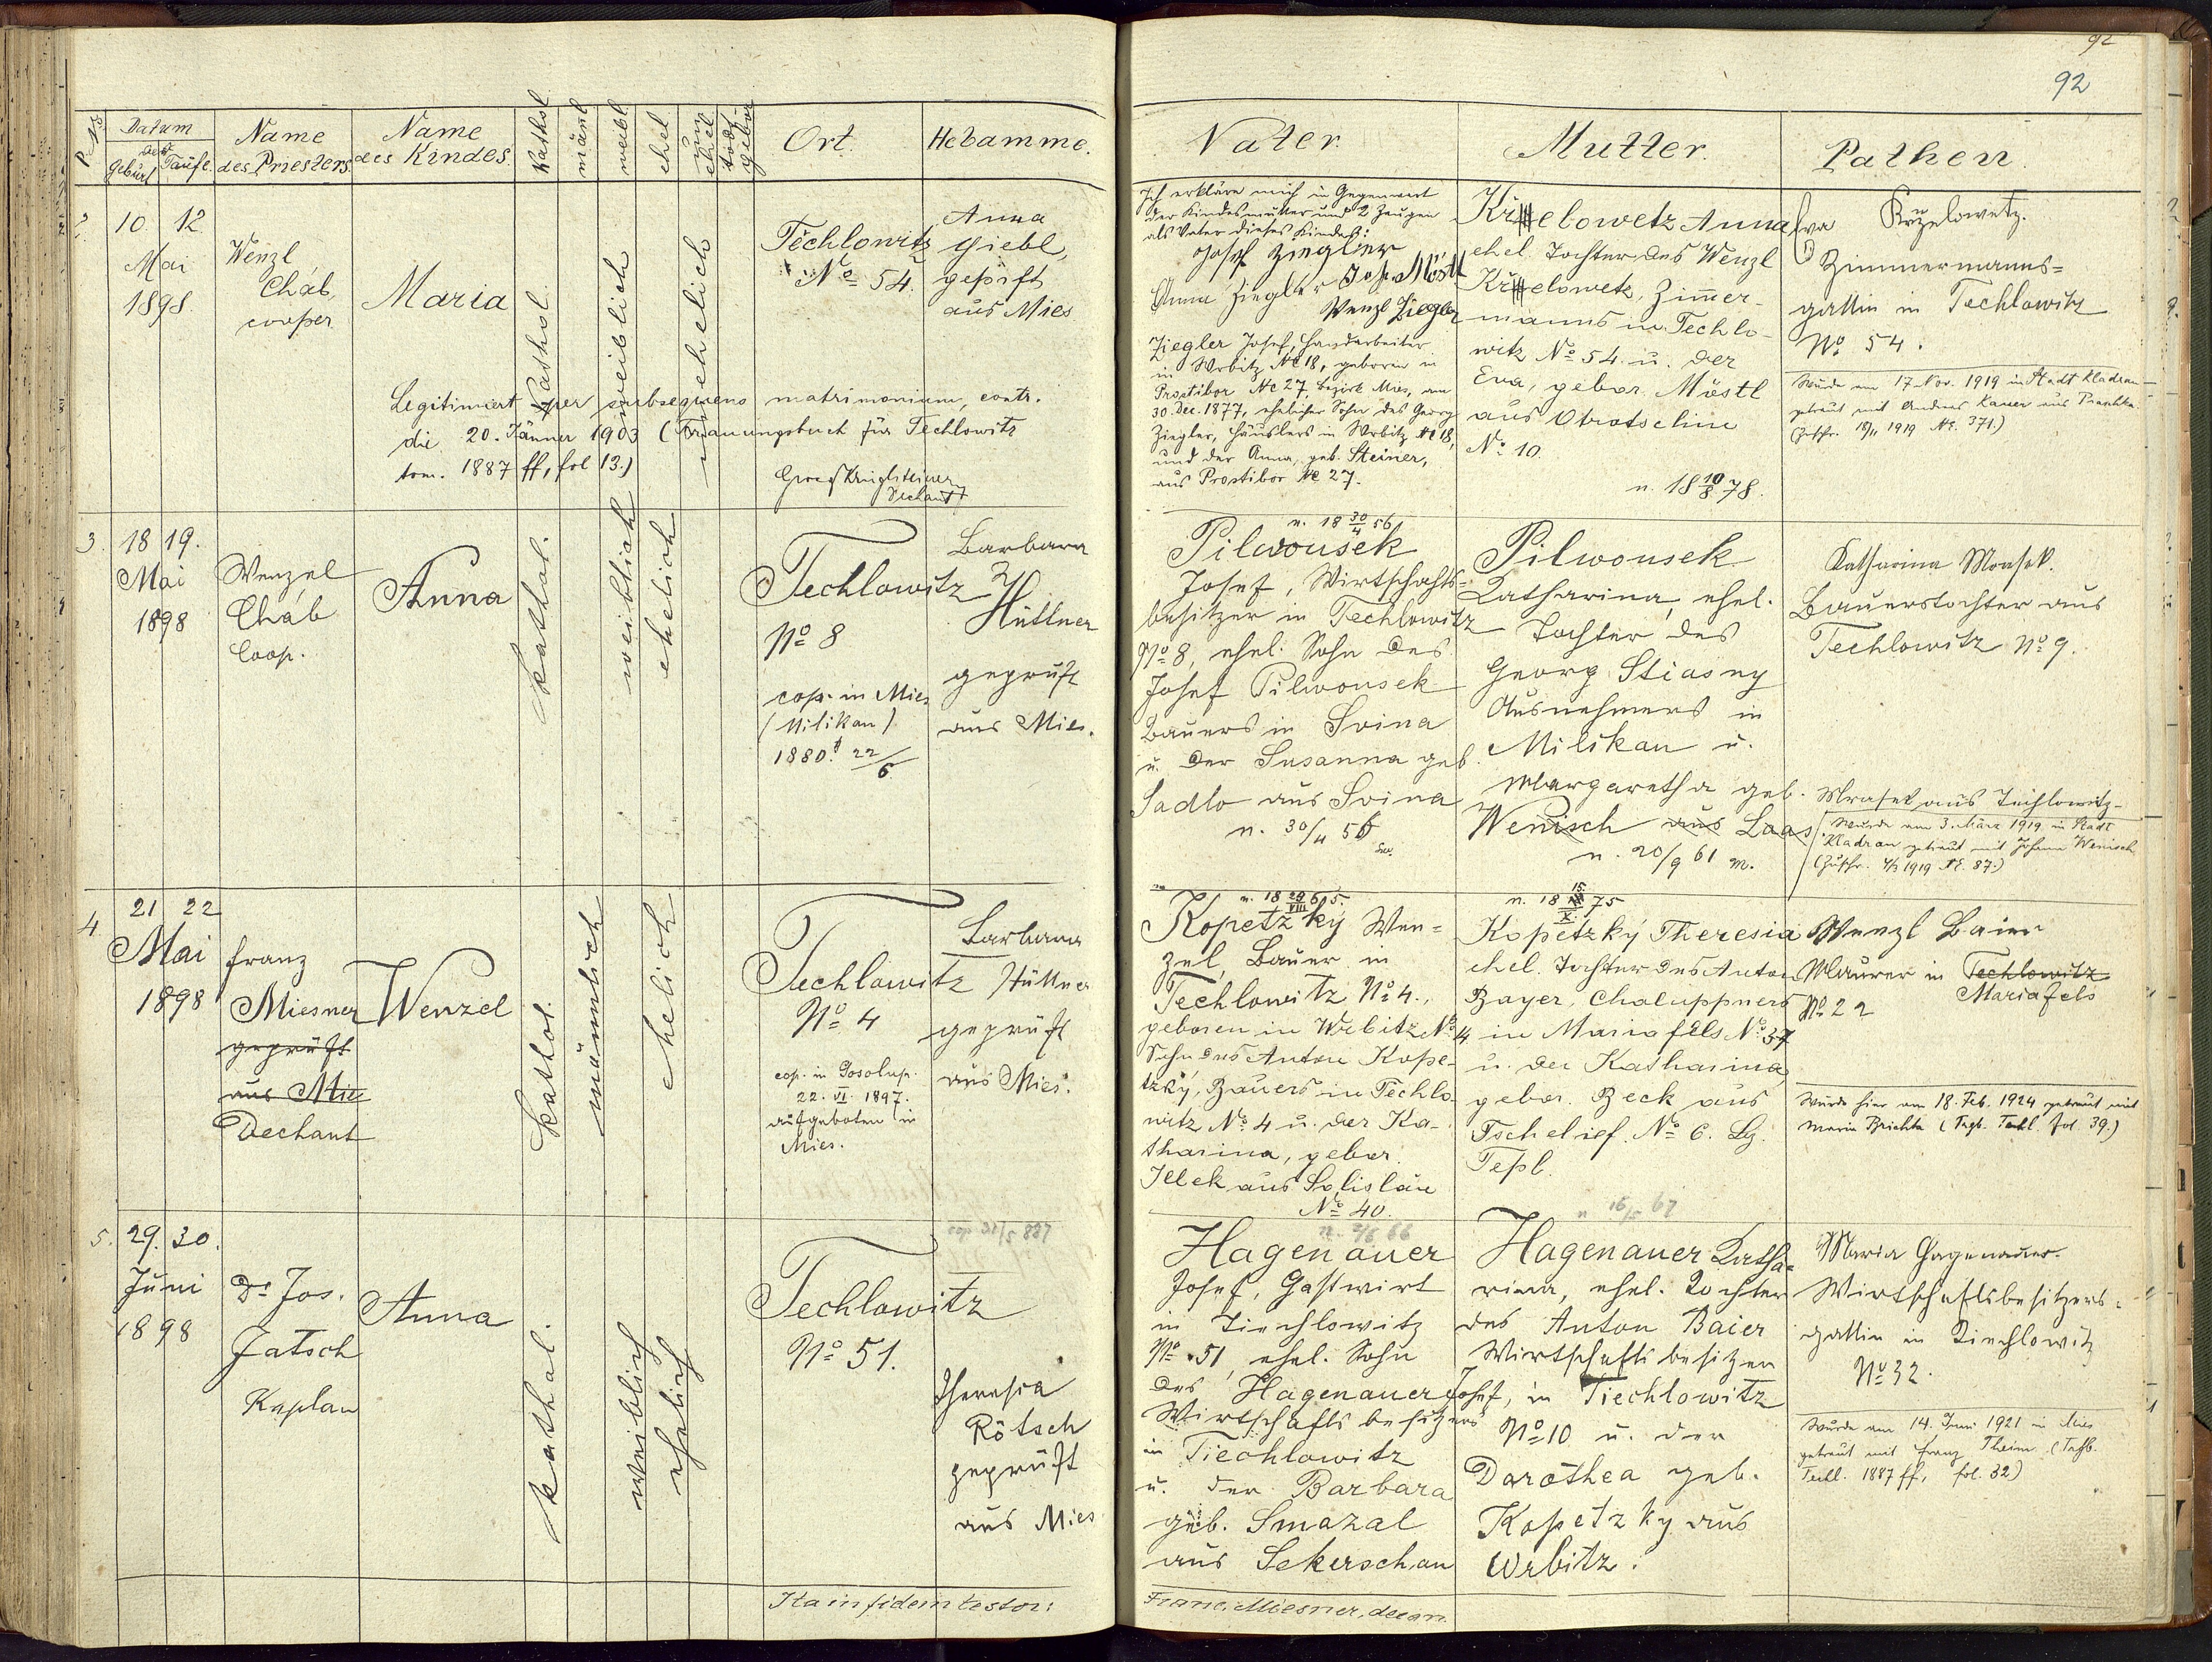 92
92
Datum
der
Geburt Taufe.
Name
des Priesters.
Name
des Kindes.
Kathol.
männl
weibl
ehel
un
ehel
todt
gebor
Ort.
Hebamme.
Vater.
Mutter.
Pathen.
10 12
Mai
1898.
Wenzl
Cháb,
cooper
Maria
Kathol.
weiblich
unehelich
Techlowitz
No 54.
Anna
Giebl,
geprüft
aus Mies
Legitimiert per subsequens matrimonium, contr.
die 20. Jänner 1903 (Trauungsbuch für Techlowitz
tom. 1887 ff, fol 13.)
Dechant
Ich erkläre mich in Gegenwart
der Kindesmutter und 2 Zeugen
als Vater dieses Kindes:
Josef Ziegler
Anna Ziegler Josef Möstl
Wenzl Ziegler
Ziegler Josef, Handarbeiter
in Wrbitz No 18, geboren in
Prostibor No 27, Bezirk Mies, am
30. Dec. 1877, ehelicher Sohn des Georg
Ziegler, Häuslers in Wrbitz No 18,
und der Anna, geb. Steiner,
aus Prostibor No 27.
Anna
ehel. Tochter des Wenzl
Zimer-
manns in Techlo-
witz No 54 u. der
Eva, gebor. Möstl
aus Otrotschin
No 10.
n. 18 10/8 78.
Eva Krželowetz.
Zimmermanns-
gattin in Techlowitz
No 54.
Wurde am 17. Nov. 1919 in Stadt Kladrau
getraut mit Andreas Kauer aus
(Zuschr. 18/11 1919 No. 371.)
3. 18 19.
Mai
1898
Wenzel
Cháb
Coop.
Anna
kathol.
weiblich
ehelich
Techlowitz
No 8
cop. in Mies
(Milikau)
1880 22/6
Barbara
Hüttner
geprüft
aus Mies.
n. 18 30/4 56
Pilwousek
Josef, Wirtschafts-
besitzer in Techlowitz
No 8, ehel. Sohn des
Josef Pilwousek
Bauers in Svina
u. der Susanna geb.
Sadlo aus Svina
n. 30/4 56
Pilwousek
Katharina, ehel.
Tochter des
Georg Stiasny
Ausnehmers in
Milikau u.
Margaretha geb.
Wenisch aus Laas
n. 20/9 61 m.
Katharina Mrasek.
Bauerstochter aus
Techlowitz No 9.
Mrasek aus Techlowitz
Wurde am 3. März 1919 in Stadt
Kladrau getraut mit Johann Wenisch
(Zuschr. 4/3 1919 No. 87.)
4. 21 22
Mai
1898
Franz
Miesner
geprüft
aus Mies
Dechant
Wenzel
kathol.
männlich
ehelich
Techlowitz
No 4
cop. in Gosolup.
22. VI. 1897.
aufgeboten in
Mies.
Barbara
Hüttner
geprüft
aus Mies.
Kopetzky Wen-
zel, Bauer in
Techlowitz No 4.,
geboren in Wrbitz No 4
Sohn des Anton Kope-
tzky, Bauers in Techlo-
witz No 4 u. der Ka-
tharina, gebor.
Illek aus Solislau
No 40.
Kopetzky Theresia
ehel. Tochter des Anton
Bayer, Chaluppners
in Mariafels No 37
u. der Katharina,
gebor. Beck aus
Tschelief. No 6. Bz.
Tepl.
Wenzl Baier
Maurer in Techlowitz
Mariafels
No 22
Wurde hier am 18. Feb. 1924 getraut mit
Maria Brichta (Trgb. Techl. fol. 39.)
5. 29. 30.
Juni
1898
Dr Jos.
Jatsch
Kaplan
Anna
kathol.
weiblich
ehelich
Techlowitz
No 51.
Theresia
Rötsch
geprüft
aus Mies
n. 2/5 66
Hagenauer
Josef, Gastwirt
in Tiechlowitz
No 51, ehel. Sohn
des Hagenauer Josef,
Wirtschaftsbesitzers
in Tiechlowitz
u. der Barbara
geb. Smazal
aus Sekerschan
n 16/5 67
Hagenauer Katha-
rina, ehel. Tochter
des Anton Baier
Wirtschaftsbesitzer
in Tiechlowitz
No 10 u. der
Dorothea geb.
Kopetzky aus
Wrbitz.
Maria Hagenauer.
Wirtschaftsbesitzers-
gattin in Tiechlowitz
No 32.
Wurde am 14. Juni 1921 in Mies
getraut mit Franz Theim (Trgb.
Techl. 1887 ff, fol. 32)
Ita in fidem testor:
Franc. Miesner, decan.